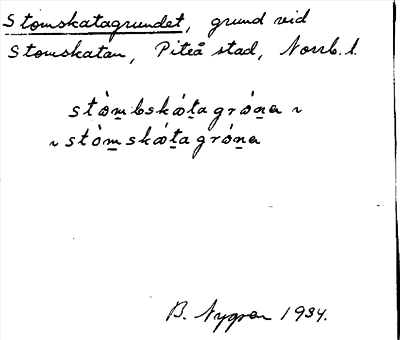 Stomskatagrundet, grund vid
Stomskatan, Piteå stad, Norrb. l.
stò̀m̲bskát̲agrón̲a ~
~ stòm̲skát̲agrón̲a
B. Nygren 1934.